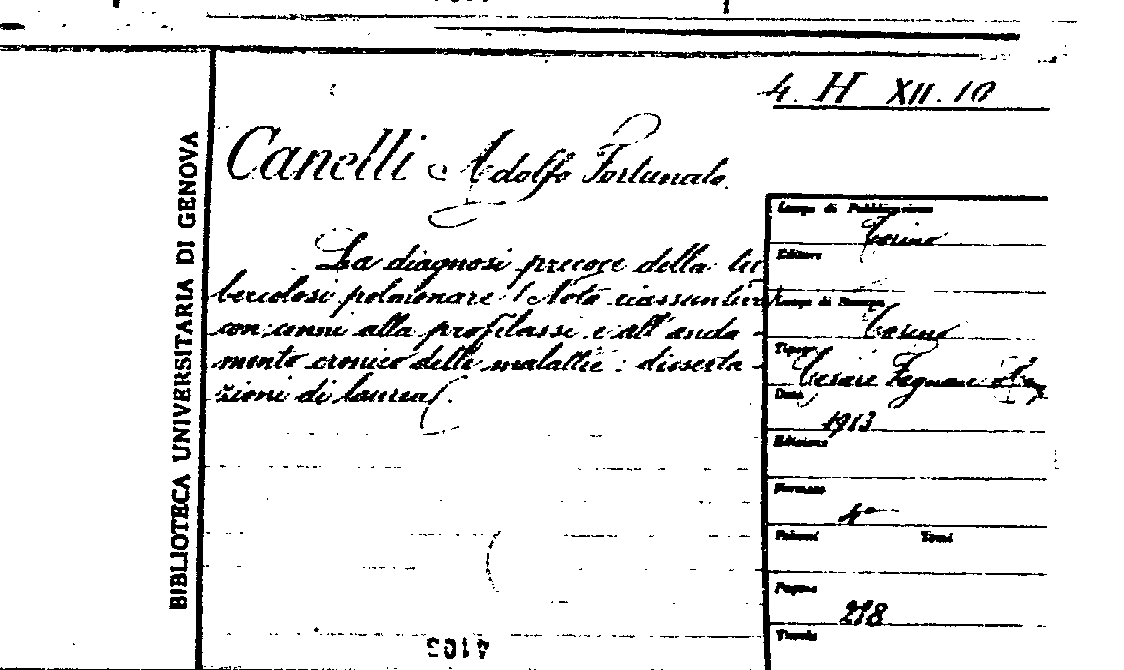 4. H XII. 10
BIBLIOTECA UNIVERSITARIA DI GENOVA
Canelli Adolfo Fortunato.
La diagnosi precoce della tu
bercolosi polmonare (Nota riassuntiva
con cenni alla profilassi e all'anda-
mento cronico delle malattie: disserta-
zioni di laurea).
Luogo di Pubblicazione
Torino
Editore
Luogo di Stampa
Torino
Tipogr.
Cesare Fagnani
Data
1913
Edizione
Formato
4°
Volumi Tomi
Pagine
218
Tavole
4103